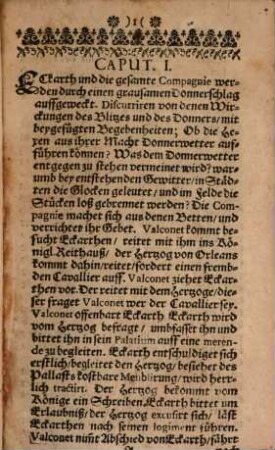 )1(
CAPUT. I.
ECkarth und die gesante Compagnie wer-
den durch einen grausamen Donnerschlag
auffgeweckt. Discurriren von denen Wir-
ckungen des Blitzes und des Donners/ mit
beygefügten Begebenheiten; Ob die He-
xen aus ihrer Macht Donnerwetter auf-
führen können? Was dem Donnerwetter
entgegen zu stehen vermeinet wird? war-
umb bey entstehenden Gewitter/ in Städ-
ten die Glocken geleutet/ und im Felde die
Stücken loß gebrennet werden? Die Com-
pagnie machet sich aus denen Betten/ und
verrichtet ihr Gebet. Valconet kommt be-
sucht Eckarthen/ reitet mit ihm ins Kö-
nigl. Reithauß/ der Hertzog von Orleans
kommt dahin/ reitet/ fordert einen fremb-
den Cavallier auff. Valconet ziehet Eckar-
then vor. Der reitet mit dem Hertzoge/ die-
ser fraget Valconet wer der Cavallier sey.
Valconet offenbart Eckarth Eckarth wird
vom Hertzog befragt/ umbfasset ihn und
bittet ihn in sein Palatium auff eine meren-
de zu begleiten. Eckarth entschuldiget sich
erstlich/ begleitet den Hertzog/ besiehet des
Pallasts kostbare Meublirung/ wird herr-
lich tractirt. Der Hertzog bekommt vom
Könige ein Schreiben, Eckarth bittet um
Erlaubniß/ der Hertzog excusirt sich/ läst
Eckarthen nach seinen logiment führen.
Valconet nimt Abschied von Eckarth/ fährt